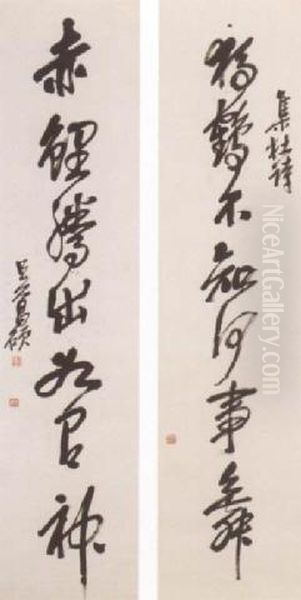 集杜詩
獨鶴不知何事舞
赤鯉騰出如有神
吳昌碩
© NiceArtGallery.com